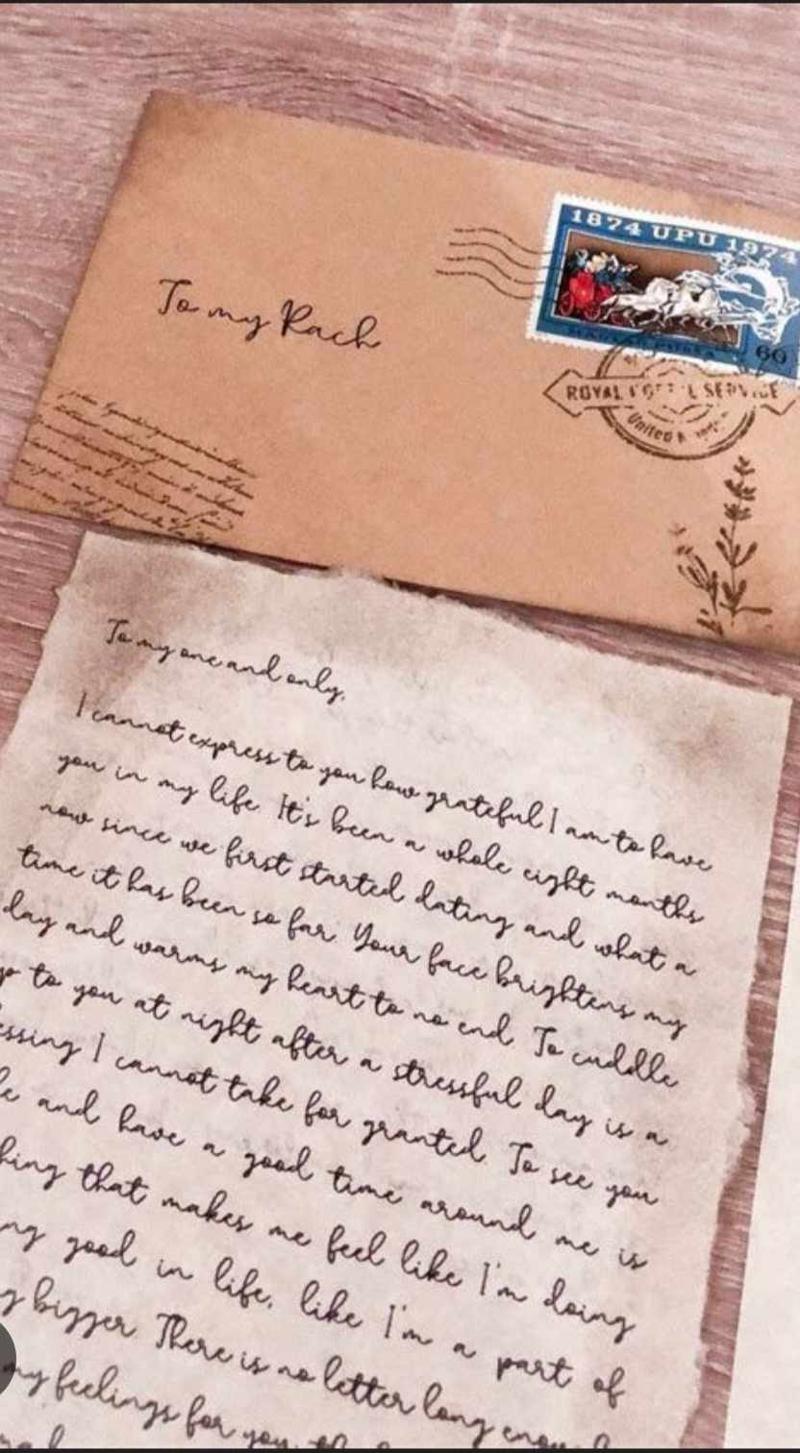 1874 UPU 1974
60
To my Rach
ROYAL
United
To my one and only,
I cannot express to you how grateful I am to have
you in my life. It's been a whole eight months
now since we first started dating and what a
time it has been so far. Your face brightens my
day and warms my heart to no end. To cuddle
to you at night after a stressful day is a
I cannot take for granted. To see you
and have a good time around me is
that makes me feel like I'm doing
good in life, like I'm a part of
bigger. There is no letter long
my feelings for you,